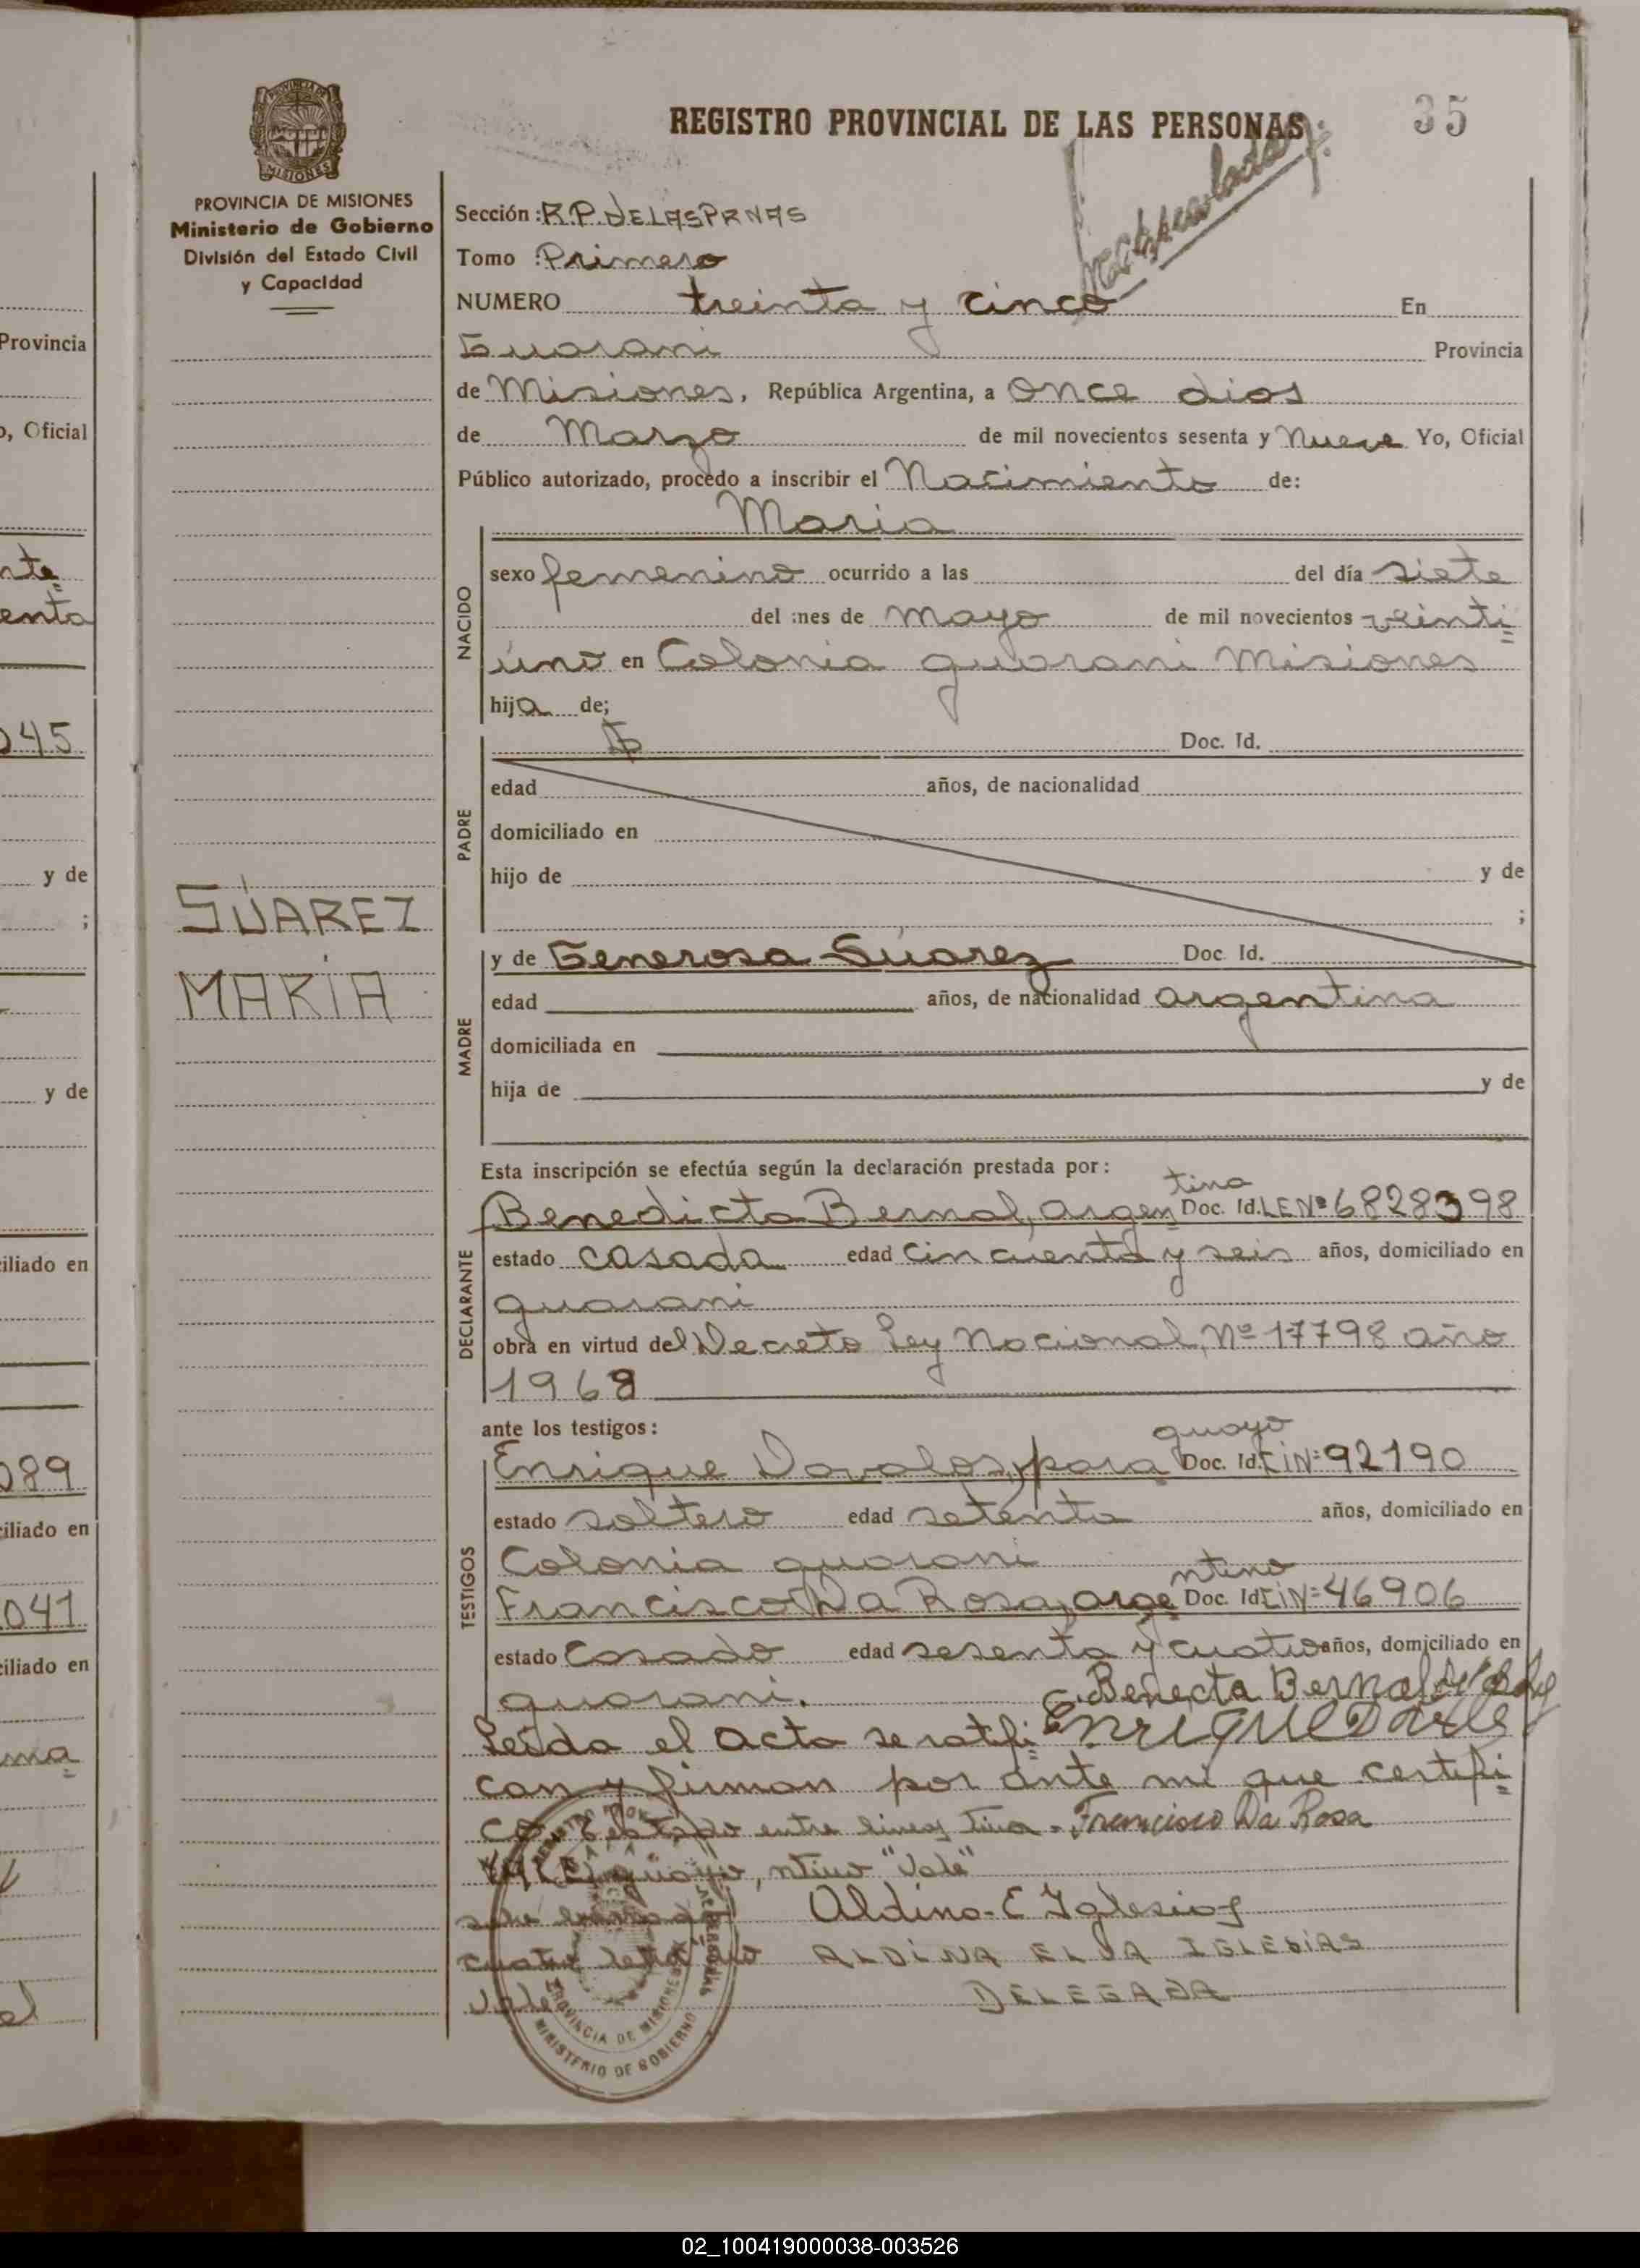 REGISTRO PROVINCIAL DE LAS PERSONAS
35
PROVINCIA DE MISIONES
Ministerio de Gobierno
División del Estado Civil
y Capacidad
Sección: R.P. DE LAS PRNAS
Tomo : Primero
NUMERO treinta y cinco En
Guarani Provincia
de Misiones, República Argentina, a once dias
de Marzo de mil novecientos sesenta y Nueve Yo, Oficial
Público autorizado, procedo a inscribir el Nacimiento de:
Maria
NACIDO
sexo femenino ocurrido a las del día siete
del mes de mayo de mil novecientos veinti
úno en Colonia guarani Misiones
hija de;
PADRE
Doc. Id.
edad años, de nacionalidad
domiciliado en
hijo de y de
;
SÚAREZ
MARÍA
MADRE
y de Generosa Súarez Doc. Id.
edad años, de nacionalidad argentina
domiciliada en
hija de y de
Esta inscripción se efectúa según la declaración prestada por:
DECLARANTE
tina
Benedicta Bernal, argen Doc. Id. LE Nº 6828398
estado casada edad cincuenta y seis años, domiciliado en
guarani
obra en virtud del Decreto Ley Nacional, Nº 17798 año
1968
ante los testigos:
TESTIGOS
guayo
Enrique Davalos, para Doc. Id. CiNº 92190
estado soltero edad setenta años, domiciliado en
Colonia guarani
ntino
Francisco Da Rosa, arge Doc. Id CiNº 46906
estado Casado edad sesenta y cuatro años, domiciliado en
guarani.
Benecta Bernal
Leida el acta se ratifi Enrique
can y firman por ante mi que certifi
co entre lineas tina - Francisco Da Rosa
guayo, ntino "Vale"
Aldina E Iglesias
cuatro ALDINA ELVA IGLESIAS
Vale DELEGADA
PROVINCIA DE MISIONES
MINISTERIO DE GOBIERNO
Provincia
o, Oficial
nte
enta
045
y de
;
y de
ciliado en
089
ciliado en
041
ciliado en
ma
el
02_100419000038-003526